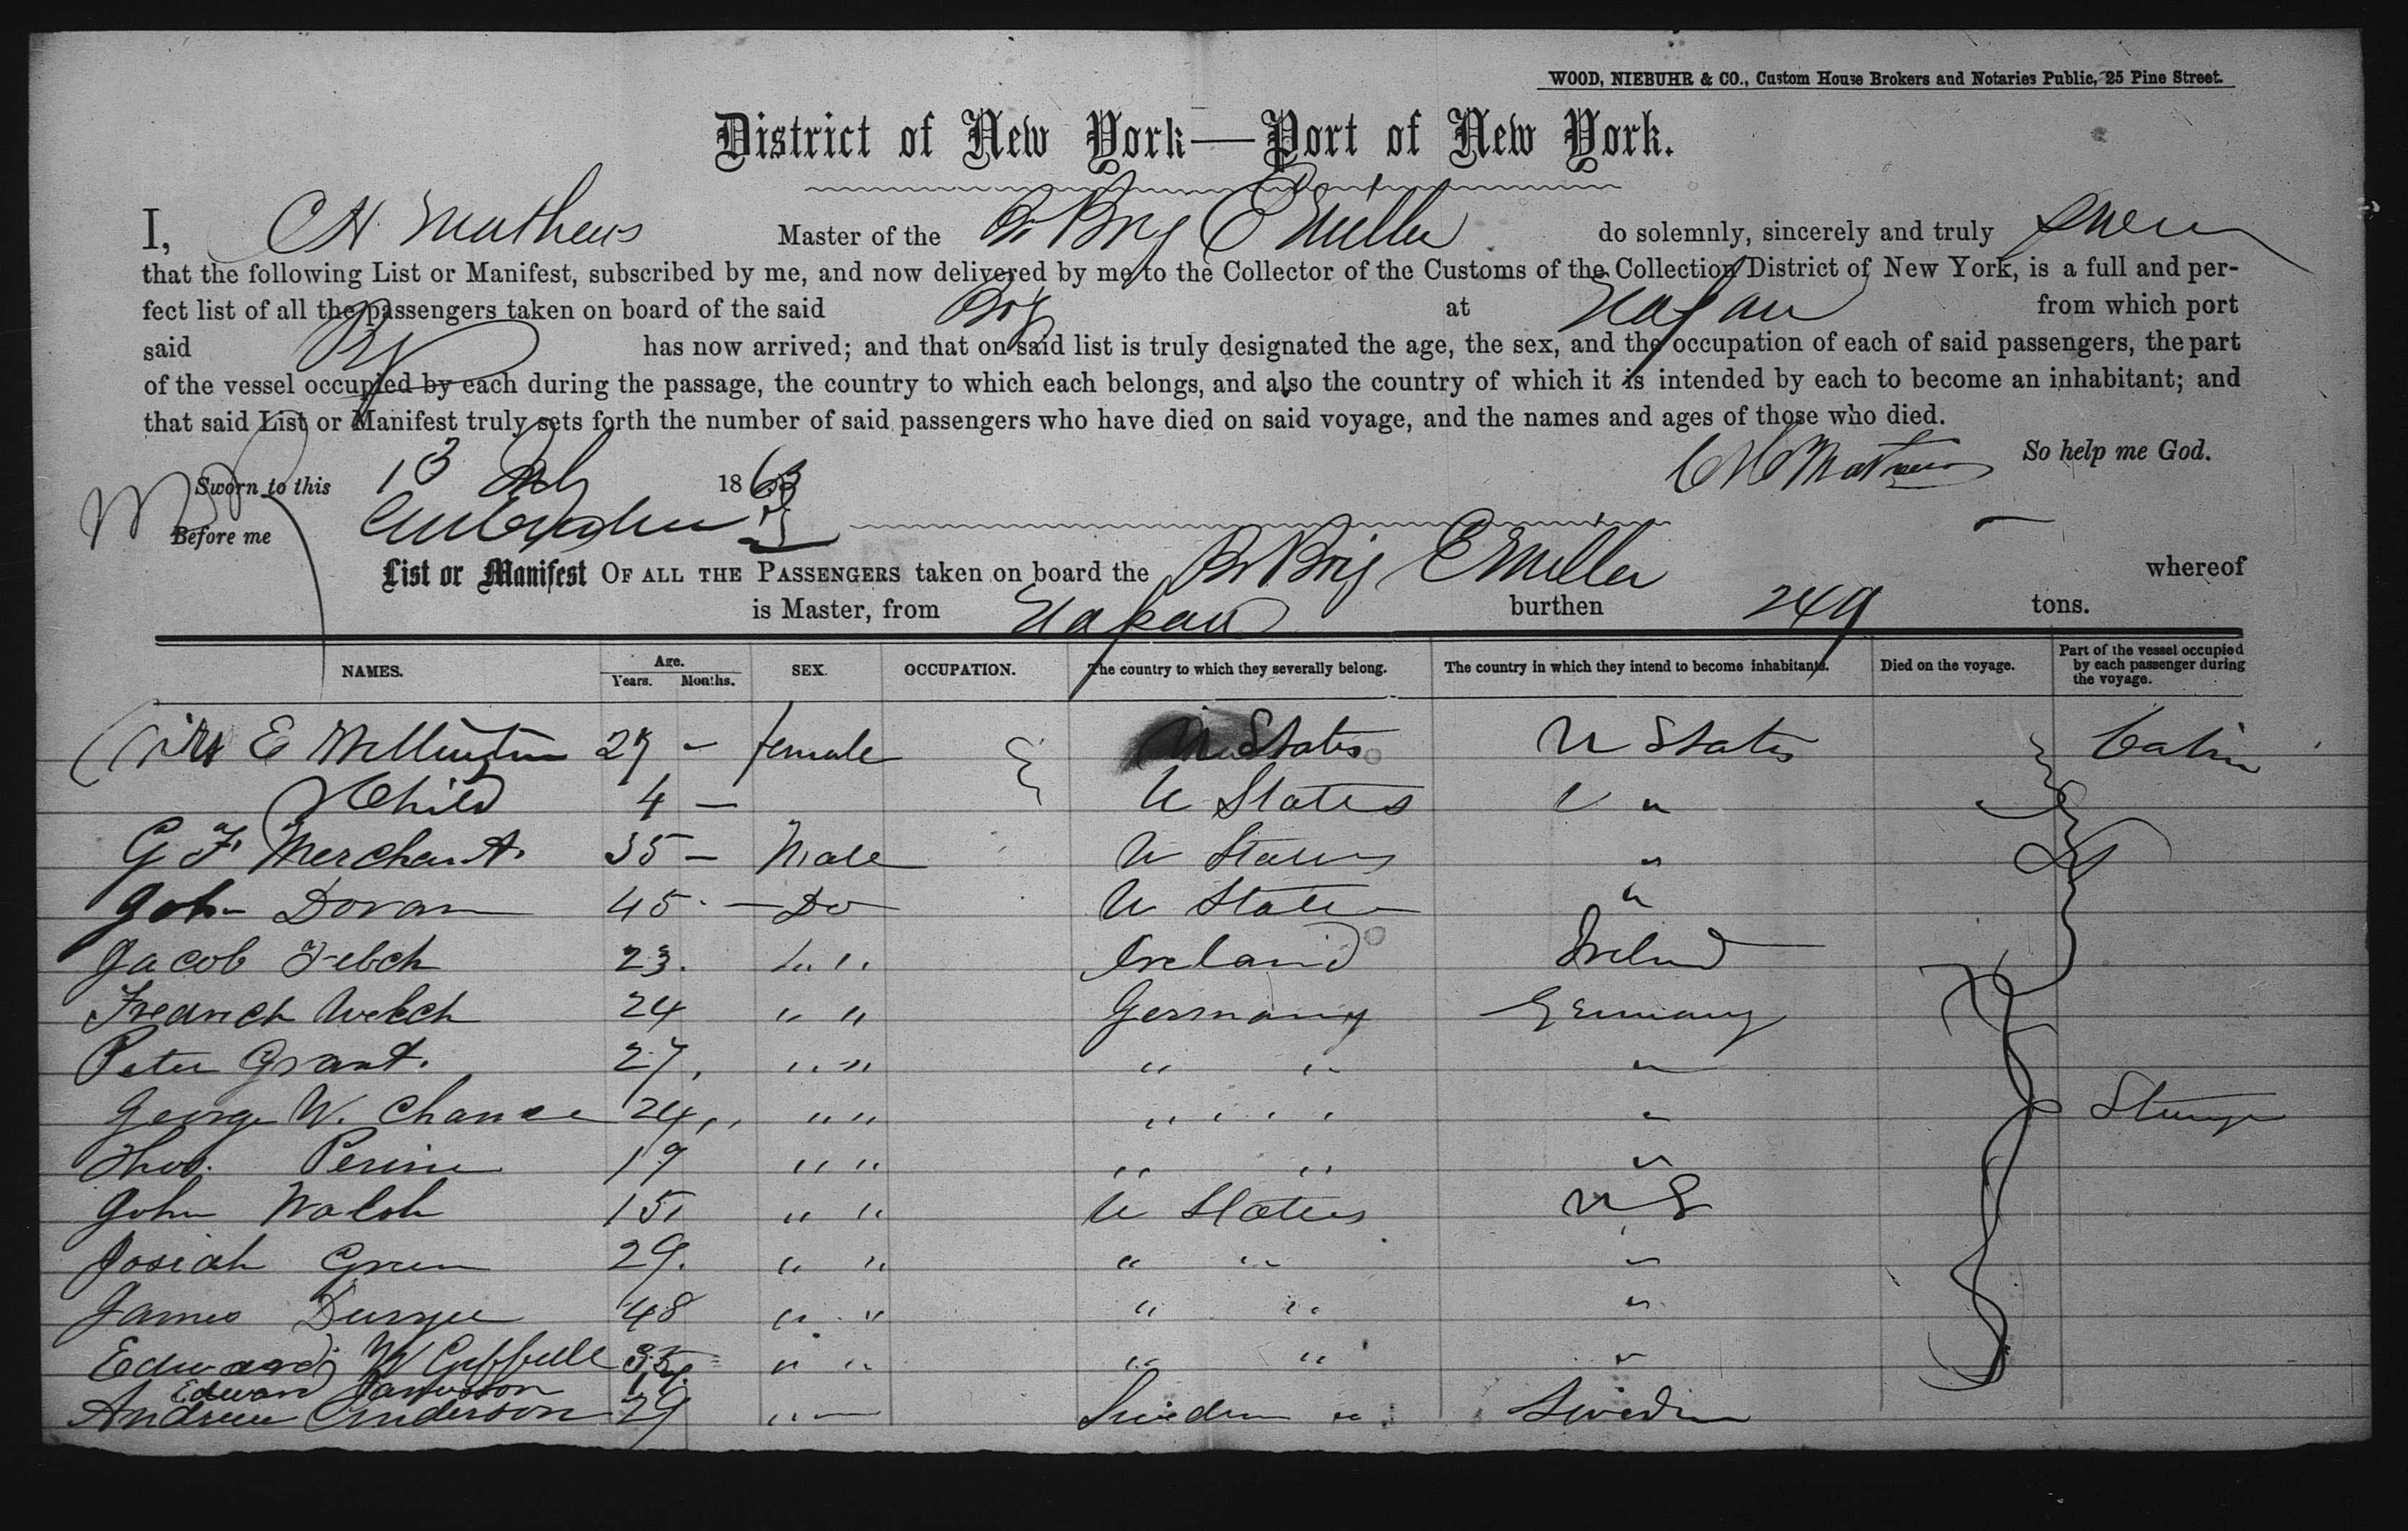 WOOD, NIEBUHR & CO., Custom House Brokers and Notaries Public, 25 Pine Street.
District of New York—Port of New York.
I, C H Mathews Master of the Br Brig E Miller do solemnly, sincerely and truly swear
that the following List or Manifest, subscribed by me, and now delivered by me to the Collector of the Customs of the Collection District of New York, is a full and per-
fect list of all the passengers taken on board of the said Brig at from which port
said Brig has now arrived; and that on said list is truly designated the age, the sex, and the occupation of each of said passengers, the part
of the vessel occupied by each during the passage, the country to which each belongs, and also the country of which it is intended by each to become an inhabitant; and
that said List or Manifest truly sets forth the number of said passengers who have died on said voyage, and the names and ages of those who died.
So help me God.
Sworn to this 13 1863
C H Mathews
Before me
List or Manifest OF ALL THE PASSENGERS taken on board the Br Brig E Miller whereof
is Master, from burthen 249 tons.
NAMES. Age. Years. Months. SEX. OCCUPATION. The country to which they severally belong. The country in which they intend to become inhabitants. Died on the voyage. Part of the vessel occupied by each passenger during the voyage.
Mrs E Mellington 27 - female U States U States Cabin
Child 4 — U States " "
G F Merchant 35 — Male U States "
John Doran 45 — Do U States "
Jacob 23. " " Ireland Ireland
Fredrich Welch 24 " " Germany Germany
Peter Grant. 27, " " " " "
George W. Chance 24 " " " " "
Thos. Perine 19 " " " " "
John Walsh 15 " " U States U S
Josiah Green 29. " " " " "
James Duryee 48 " " " " "
Edward W 35 " " " " "
Edward
Andrew Anderson 29 " Sweden " Sweden